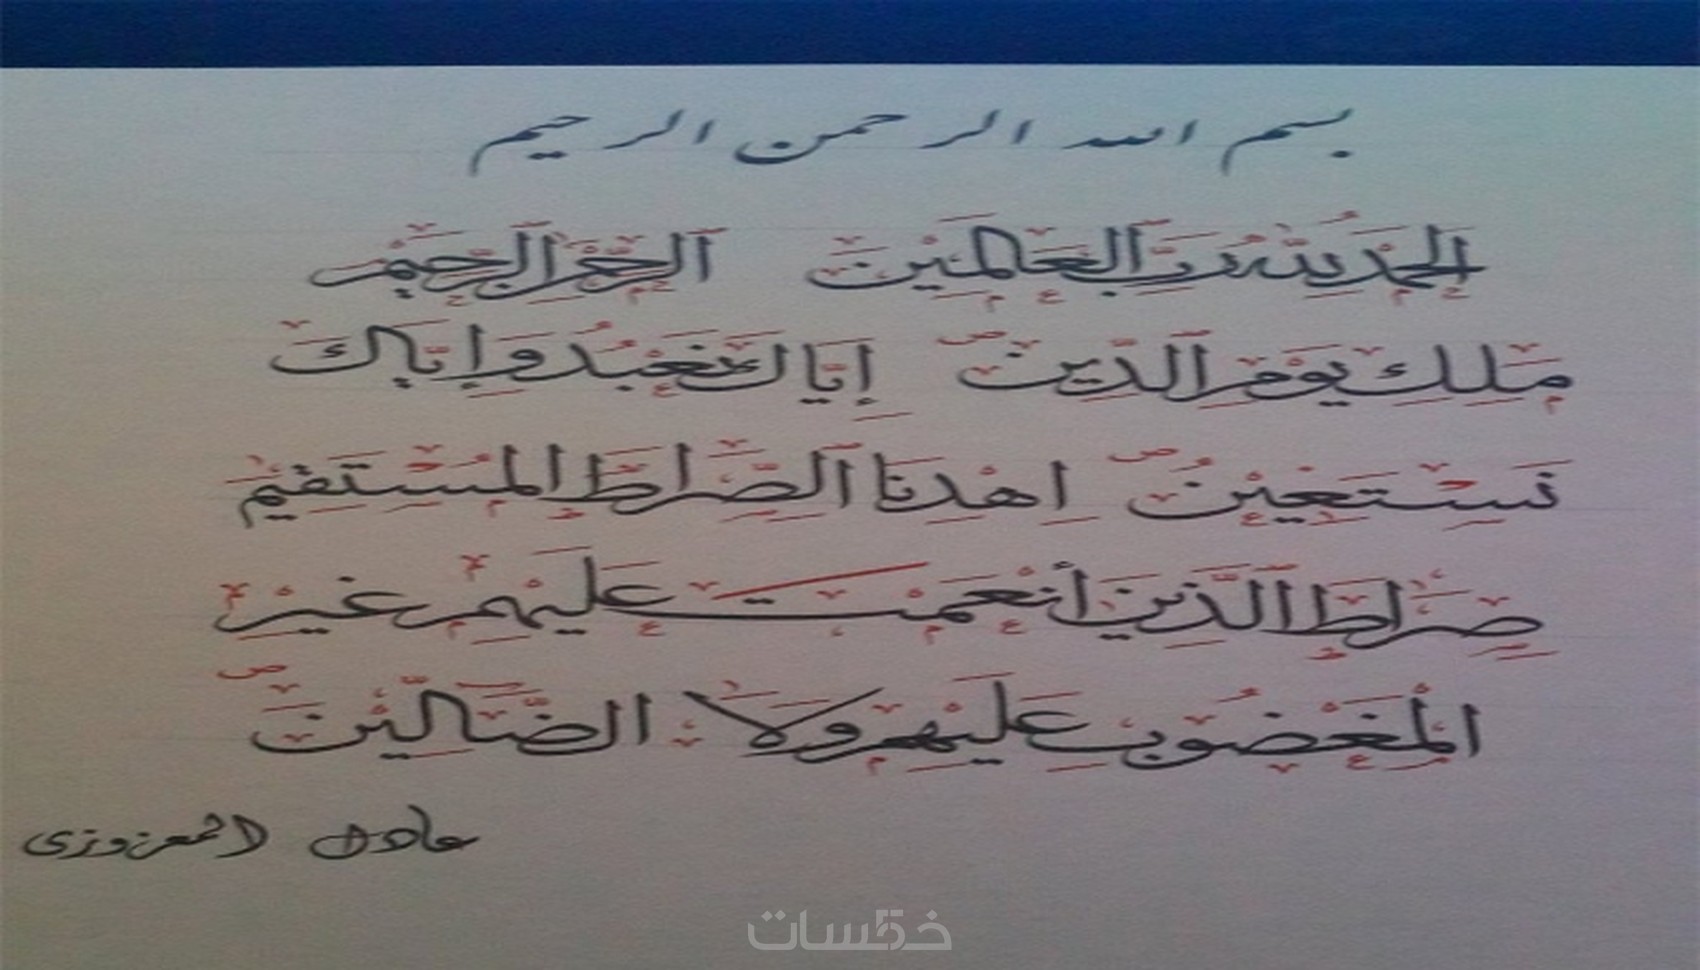 بسم الله الرحمن الرحيم
اَلْحَمْدُ لِلَّهِ رَبِّ الْعَالَمِيْنَ اَلرَّحْمَنِ الرَّحِيْمِ
مَلِكِ يَوْمِ الدِّيْنِ إِيَّاكَ نَعْبُدُ وَإِيَّاكَ
نَسْتَعِيْنُ اِهْدِنَا الصِّرَاطَ الْمُسْتَقِيْمَ
صِرَاطَ الَّذِيْنَ أَنْعَمْتَ عَلَيْهِمْ غَيْرِ
الْمَغْضُوْبِ عَلَيْهِمْ وَلَا الضَّالِّيْنَ
عادل المعزوزى
خمسات